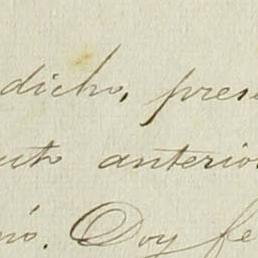 dicho, pres
uto anterior
nó. Doy fe